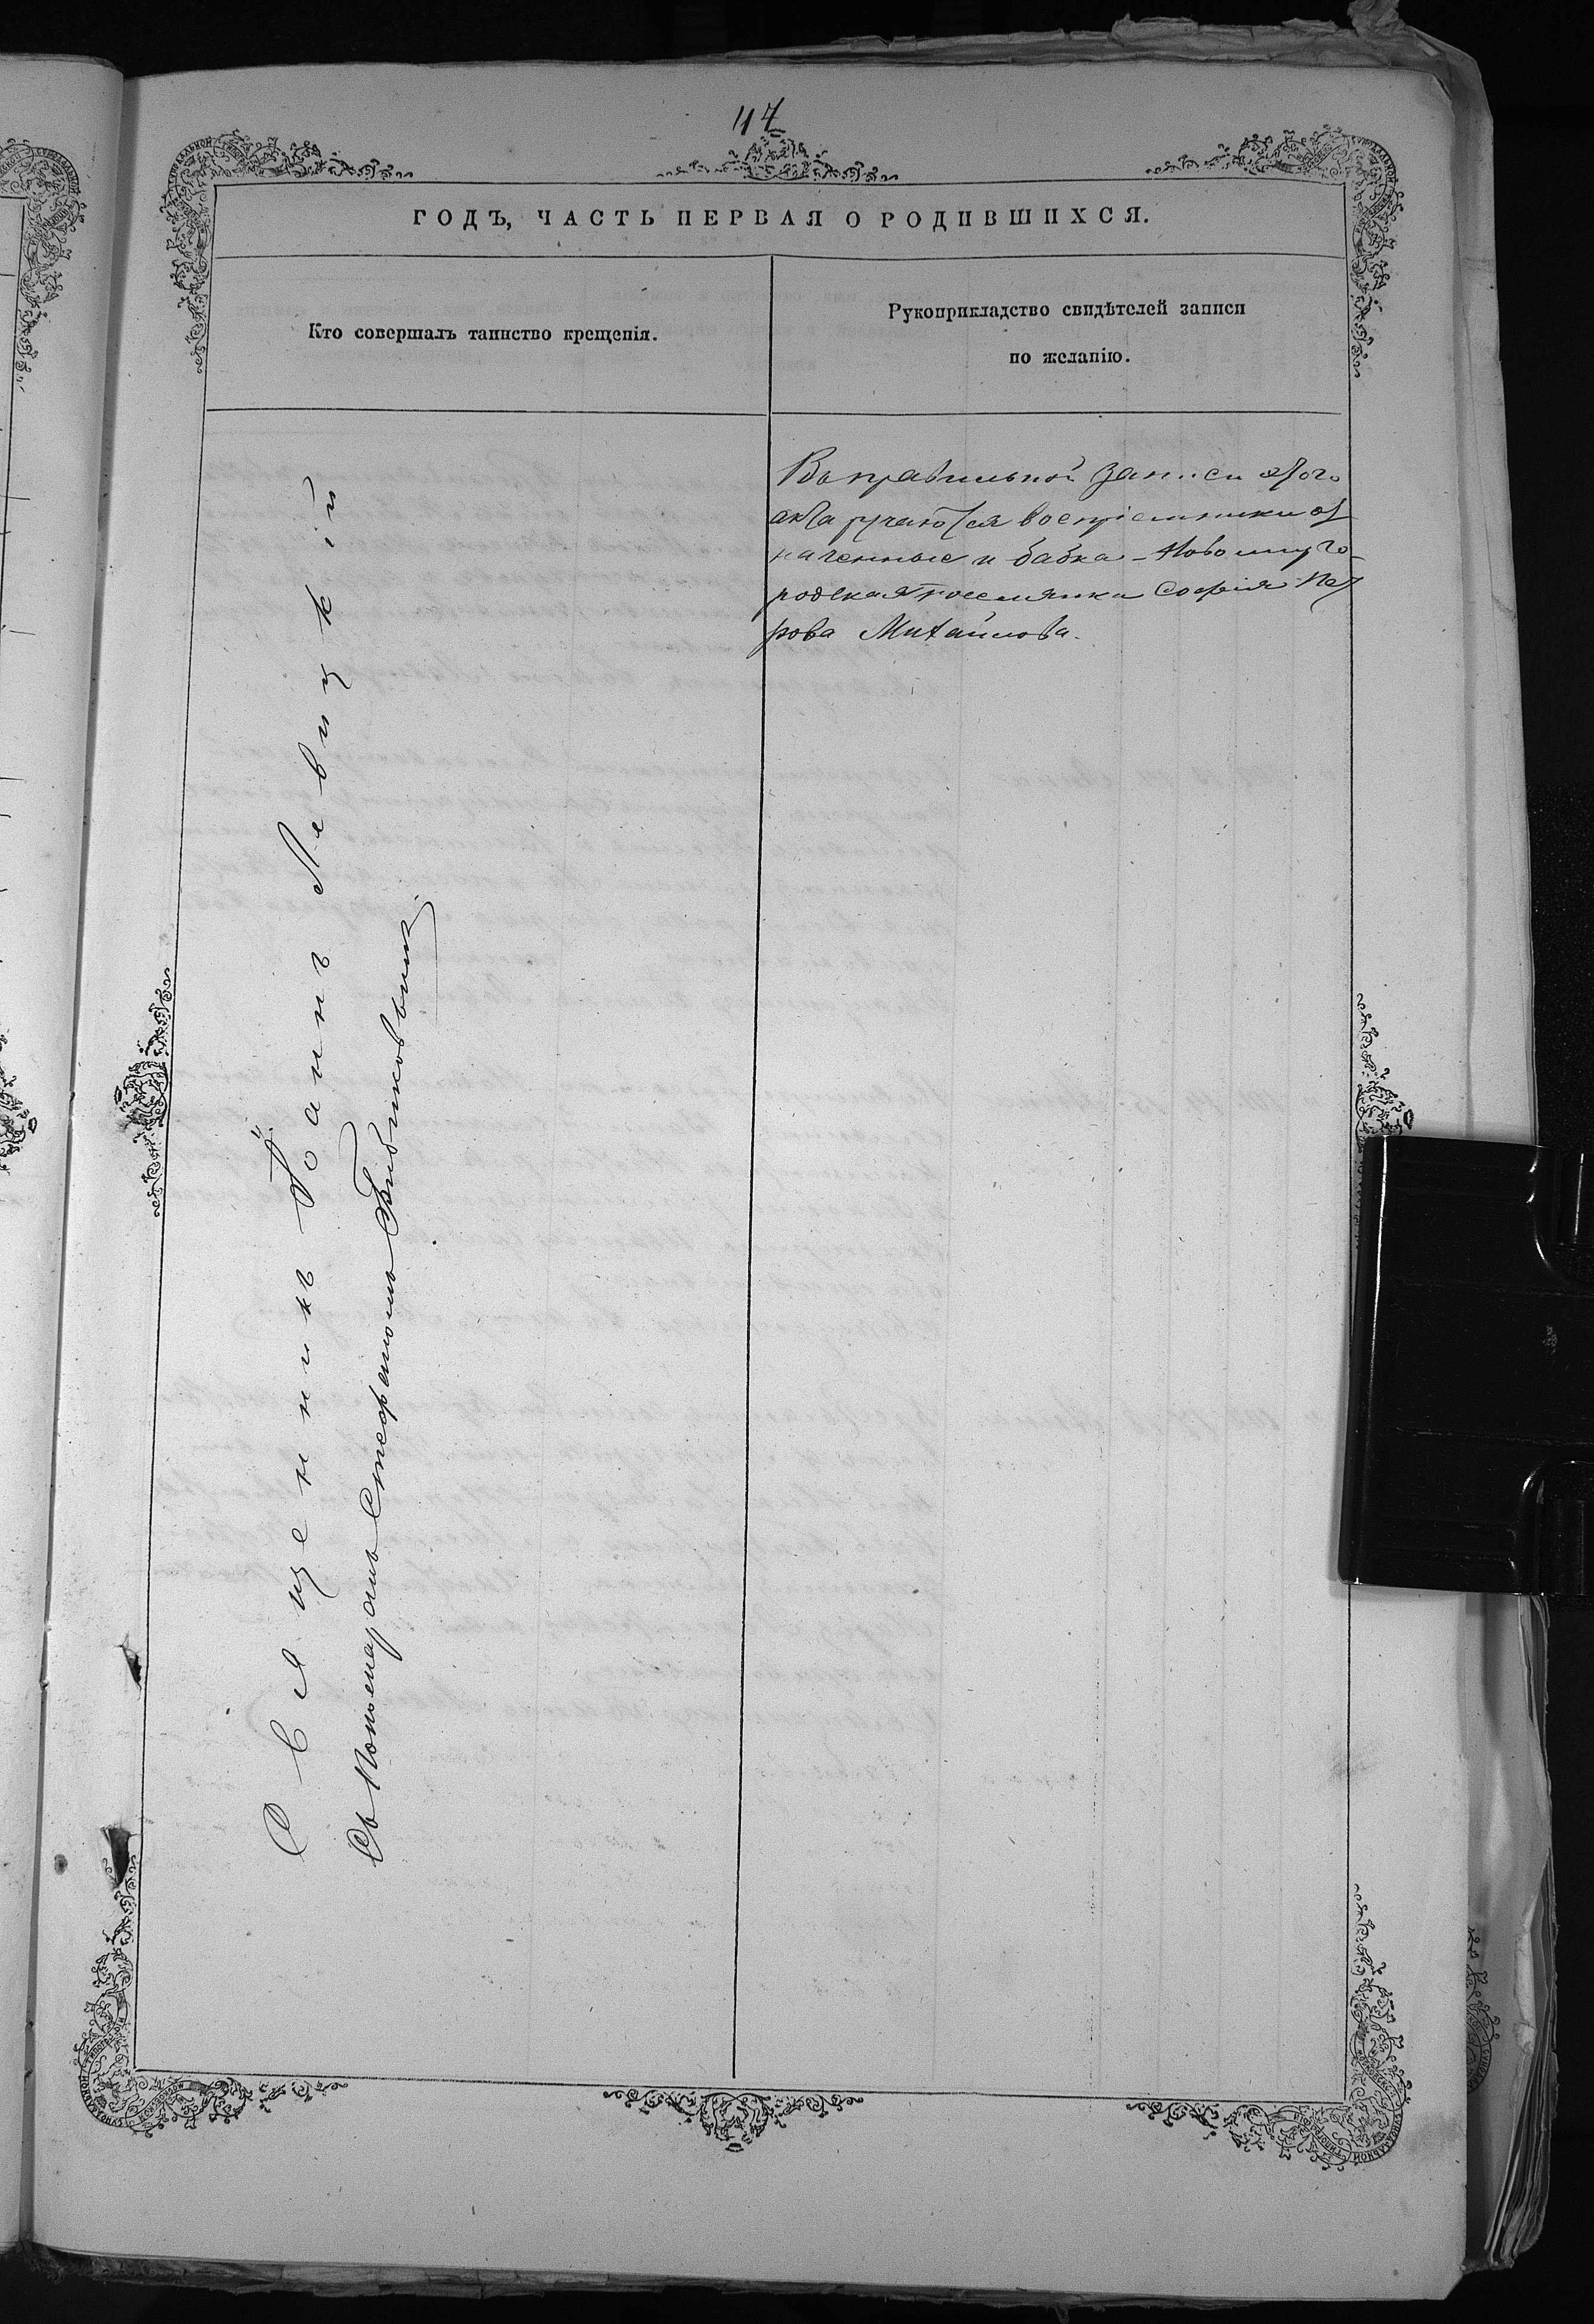 117
ГОДЪ, ЧАСТЬ ПЕРВАЯ О РОДИВШИХСЯ.
Кто совершалъ таинство крещенія.
Рукоприкладство свидѣтелей записи
по желанію.
Священникъ Іоаннъ Левицкій
Съ Пономаремъ Стефаномъ Бибиковымъ
Въ правильной записи этого
акта ручаются воспріемники оз
наченные и бабка - Новомирго-
родская поселянка Софія Пет
рова Михайлова.